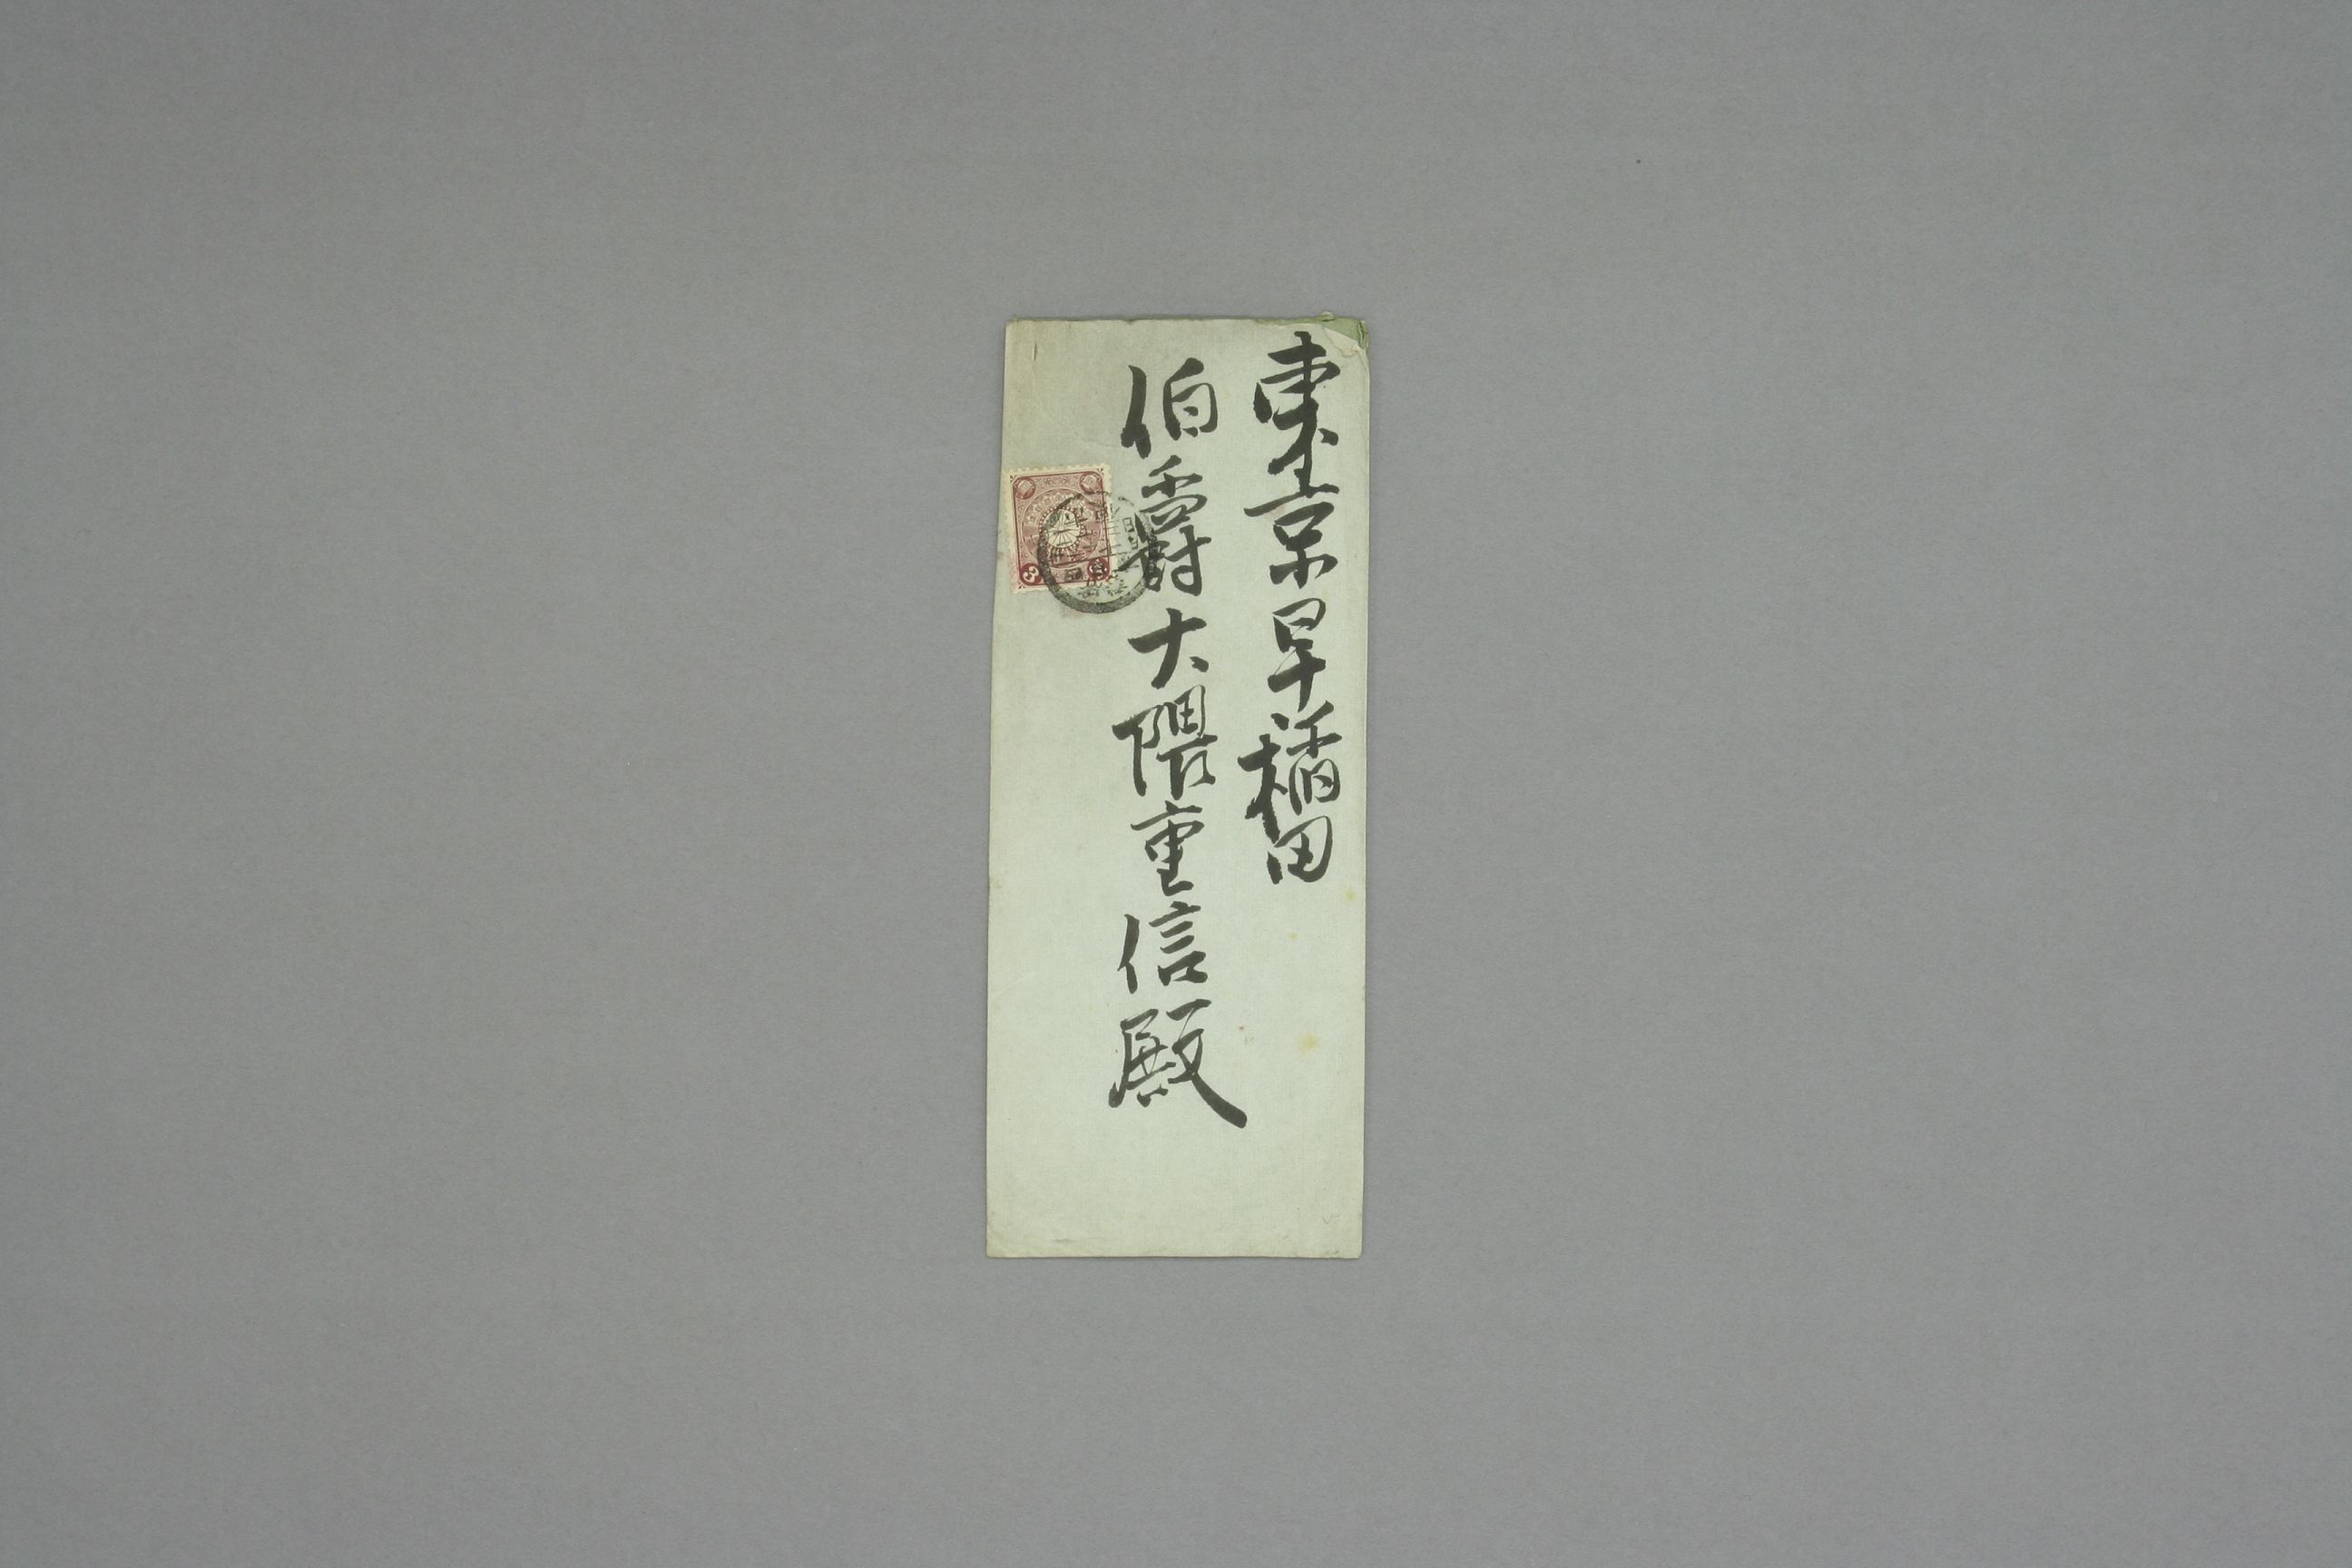 東京早稲田
伯爵大隈重信殿
3